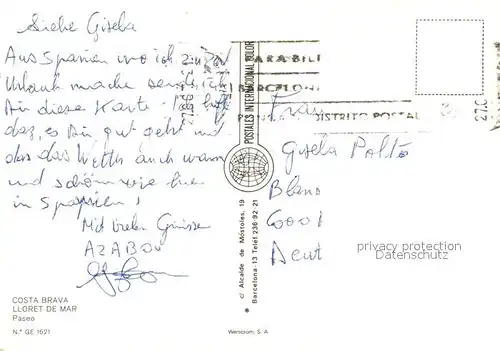 Liebe Gisela
Aus Spanien wo ich
Urlaub mache sende ich
Dir diese Karte. Ich hoffe
das, es Dir gut geht und
das das Wetter auch warm
und schön wie hier
in Spanien!
Mit vielen Grüssen
COSTA BRAVA
LLORET DE MAR
Paseo
N.º GE 1621
POSTALES INTERNACIONAL COLOR
c/ Alcalde de Móstoles, 19
Barcelona-13 Telef. 236-92-21
Wernicom, S. A
PARA BILI
BARCELONA
DISTRITO POSTAL
Frau
Gisela
6001
Deut
privacy protection
Datenschutz